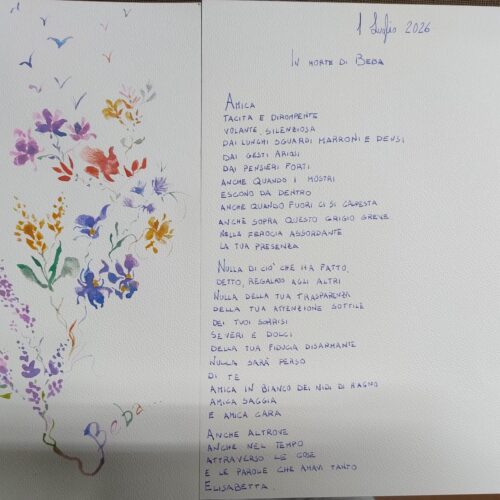 Beba
1 Luglio 2026
IN MORTE DI BEBA
AMICA
TACITA E DIROMPENTE
VOLANTE SILENZIOSA
DAI LUNGHI SGUARDI MARRONI E DENSI
DAI GESTI ARIOSI
DAI PENSIERI FORTI
ANCHE QUANDO I MOSTRI
ESCONO DA DENTRO
ANCHE QUANDO FUORI CI SI CALPESTA
ANCHE SOPRA QUESTO GRIGIO GREVE
NELLA FEROCIA ASSORDANTE
LA TUA PRESENZA
NULLA DI CIO' CHE HA FATTO,
DETTO, REGALATO AGLI ALTRI
NULLA DELLA TUA TRASPARENZA
DELLA TUA ATTENZIONE SOTTILE
DEI TUOI SORRISI
SEVERI E DOLCI
DELLA TUA FIDUCIA DISARMANTE
NULLA SARÀ PERSO
DI TE
AMICA IN BIANCO DEI NIDI DI RAGNO
AMICA SAGGIA
E AMICA CARA
ANCHE ALTROVE
ANCHE NEL TEMPO
ATTRAVERSO LE COSE
E LE PAROLE CHE AMAVI TANTO
ELISABETTA.